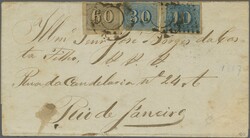 60 30 10
Illmo Senr José Borges da Cos-
ta Filho,
Rua da Candelaria No 24
Rio de Janeiro